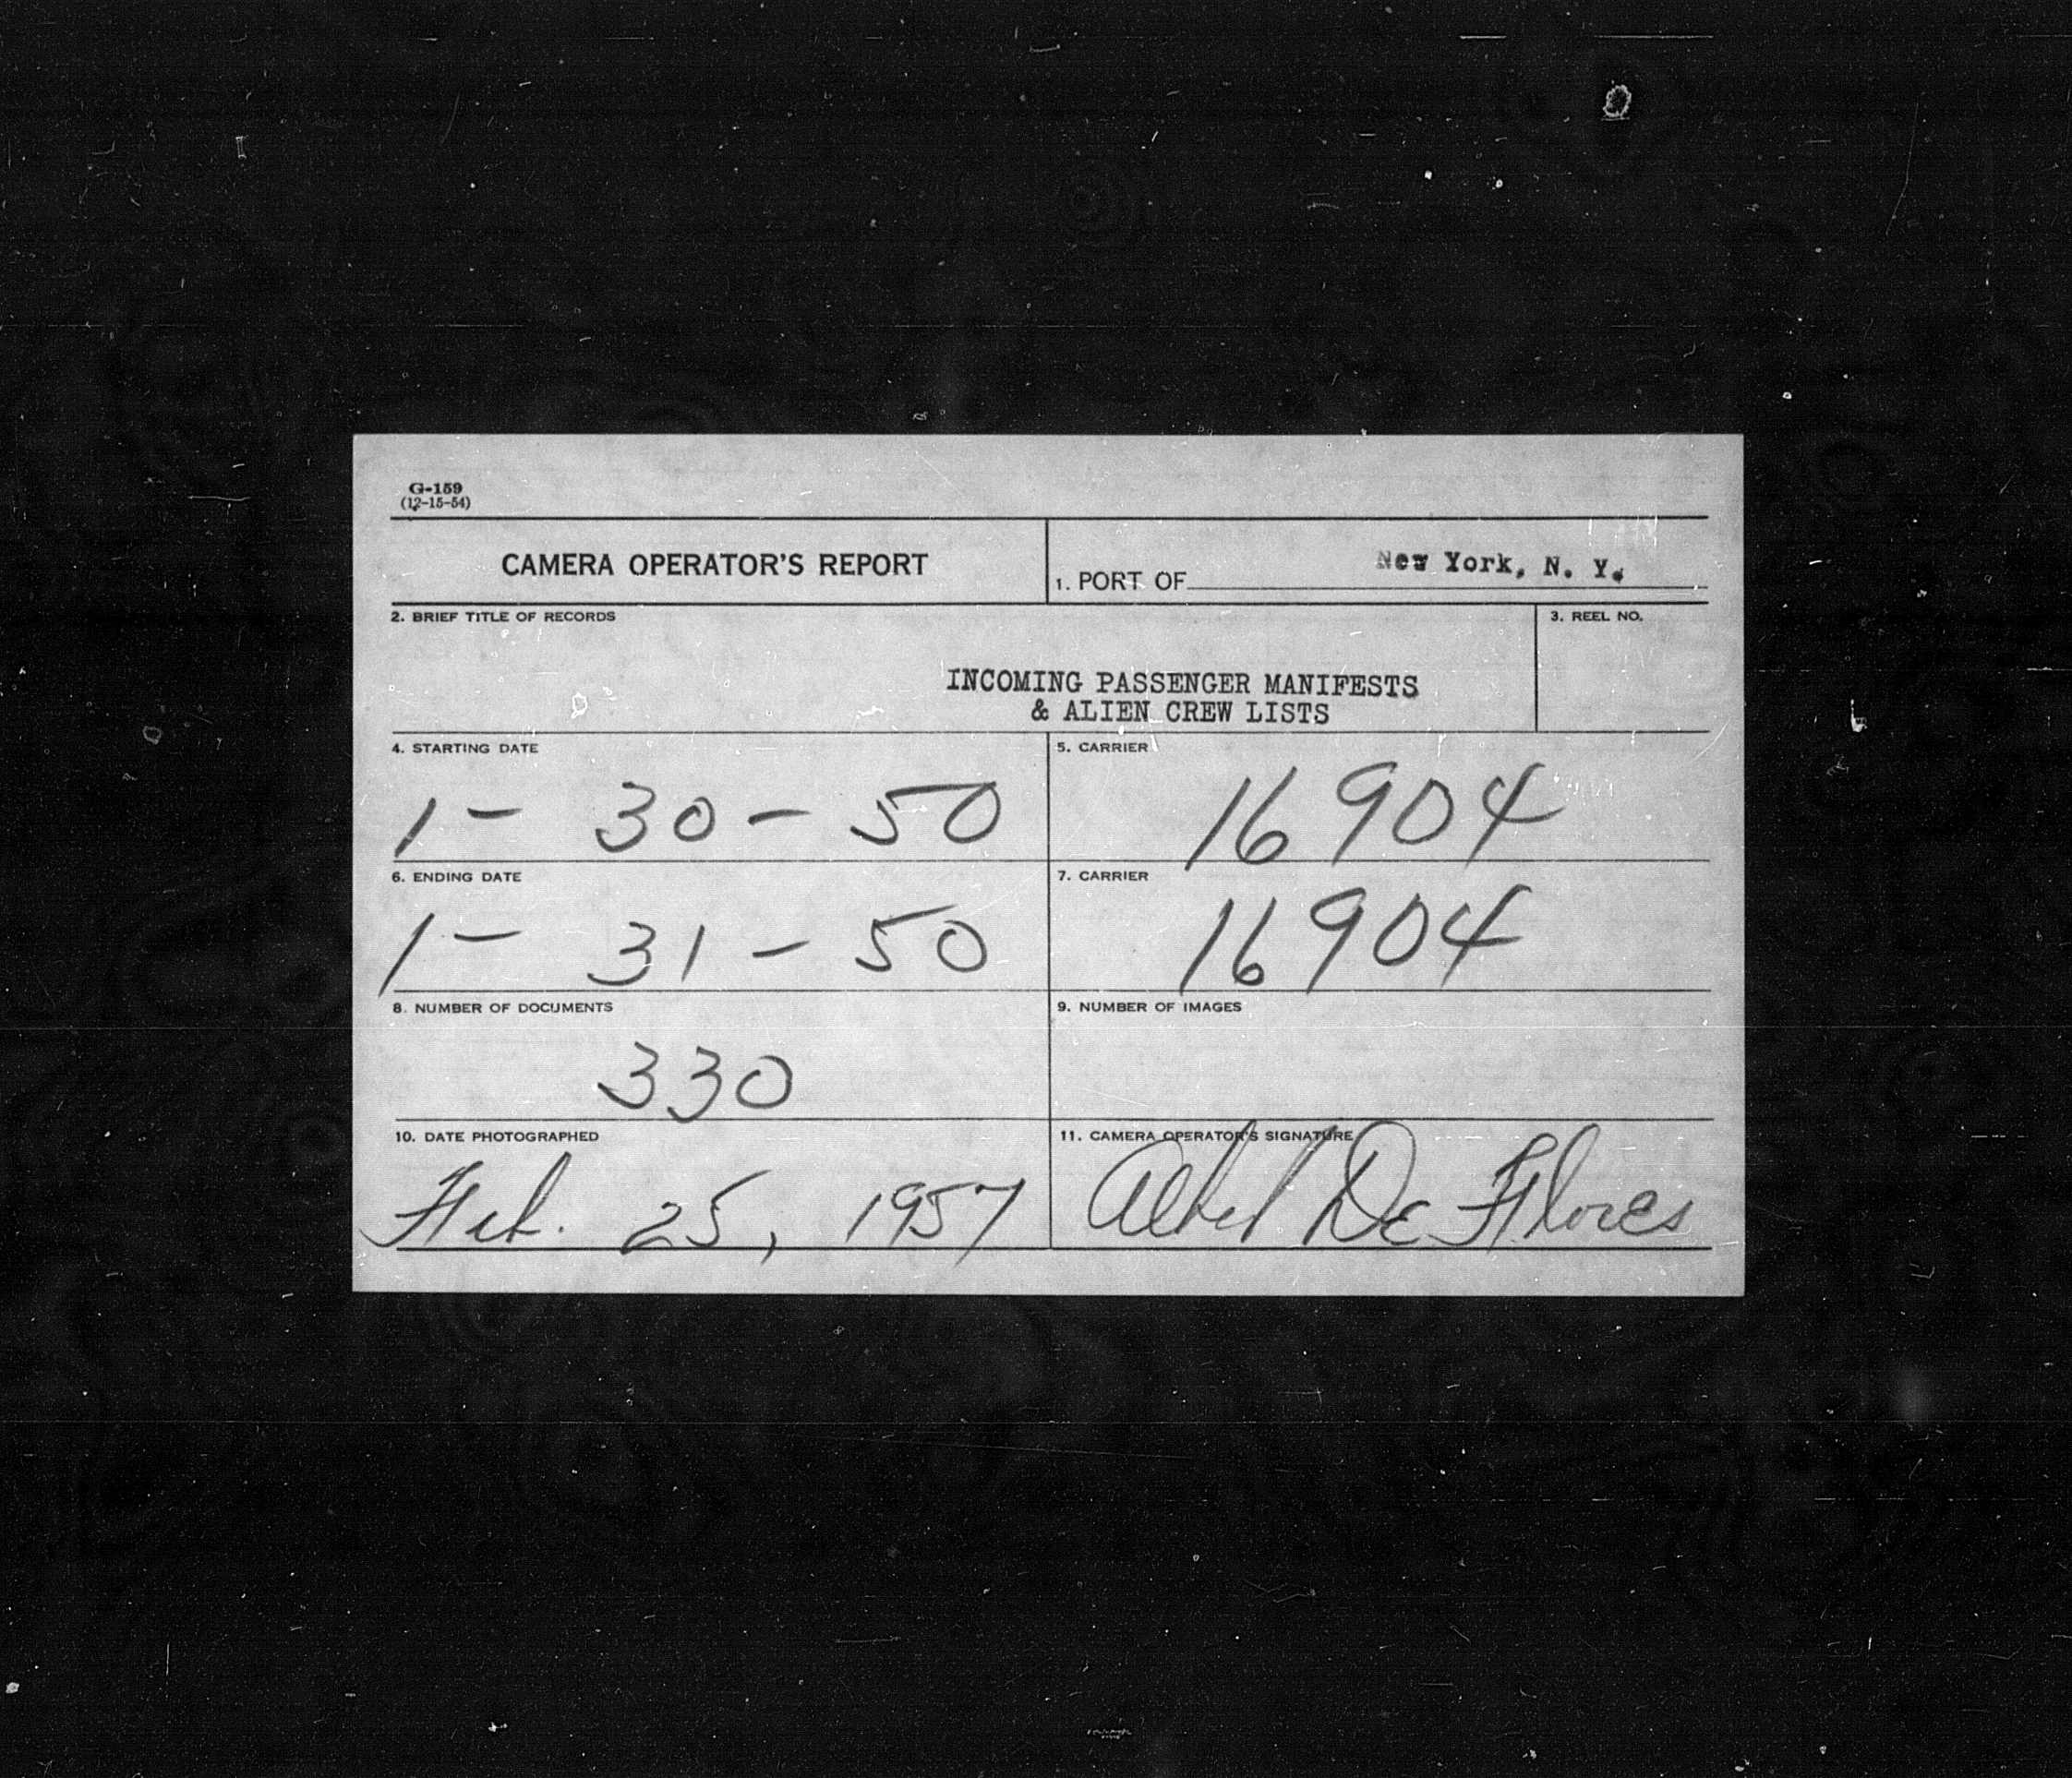 G-159
(12-15-54)
CAMERA OPERATOR'S REPORT
1. PORT OF New York, N. Y.
2. BRIEF TITLE OF RECORDS
3. REEL NO.
INCOMING PASSENGER MANIFESTS
& ALIEN CREW LISTS
4. STARTING DATE
5. CARRIER
1- 30-50
16904
6. ENDING DATE
7. CARRIER
1- 31-50
16904
8. NUMBER OF DOCUMENTS
9. NUMBER OF IMAGES
330
10. DATE PHOTOGRAPHED
11. CAMERA OPERATOR'S SIGNATURE
Feb. 25, 1957
De Flores